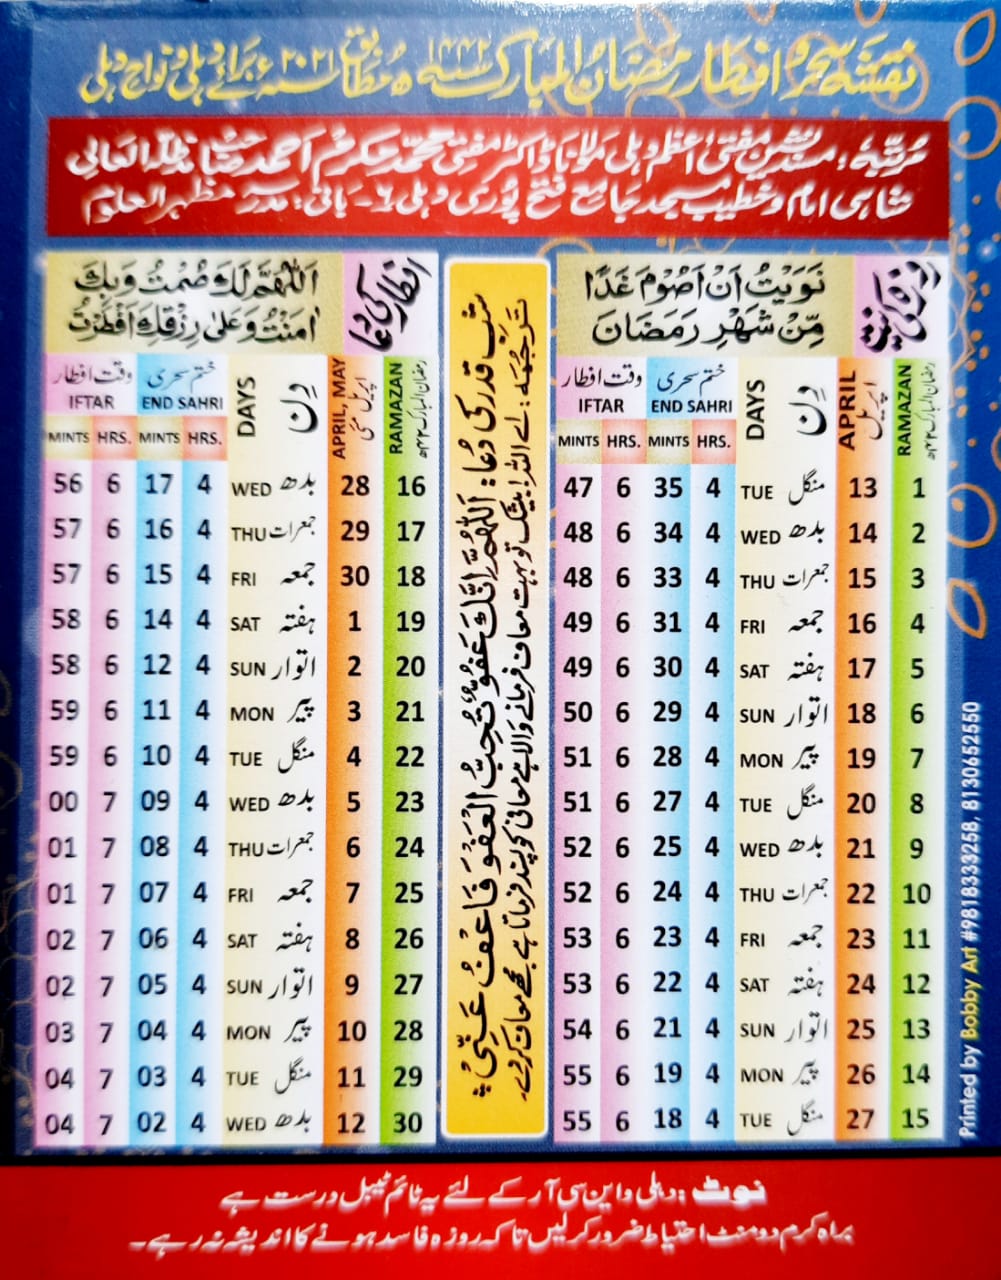 نقشہ سحر و افطار رمضان المبارک ۱۴۴۲ھ مطابق سنہ ۲۰۲۱ء برائے دہلی و نواح دہلی
مرتبہ: مسند نشین مفتیٔ اعظم دہلی مولانا ڈاکٹر مفتی محمد مکرم احمد صاحب مدظلہ العالی
شاہی امام و خطیب مسجد جامع فتح پوری دہلی ۶- بانی: مدرسہ مظہر العلوم
روزہ کی نیت
نَوَيْتُ اَنْ اَصُوْمَ غَدًا
مِّنْ شَهْرِ رَمَضَانَ
RAMAZAN رمضان المبارک ۱۴۴۲ھ
APRIL اپریل
DAYS دِن
ختم سحری END SAHRI
وقت افطار IFTAR
MINTS HRS. MINTS HRS.
47 6 35 4 TUE منگل 13 1
48 6 34 4 WED بدھ 14 2
48 6 33 4 THU جمعرات 15 3
49 6 31 4 FRI جمعہ 16 4
49 6 30 4 SAT ہفتہ 17 5
50 6 29 4 SUN اتوار 18 6
51 6 28 4 MON پیر 19 7
51 6 27 4 TUE منگل 20 8
52 6 25 4 WED بدھ 21 9
52 6 24 4 THU جمعرات 22 10
53 6 23 4 FRI جمعہ 23 11
53 6 22 4 SAT ہفتہ 24 12
54 6 21 4 SUN اتوار 25 13
55 6 19 4 MON پیر 26 14
55 6 18 4 TUE منگل 27 15
شب قدر کی دُعا: اَللّٰهُمَّ اِنَّكَ عَفُوٌّ تُحِبُّ الْعَفْوَ فَاعْفُ عَنِّيْ
ترجمہ: اے اللہ! بیشک تو بہت معاف فرمانے والا ہے معافی کو پسند فرماتا ہے مجھے معاف کر دے۔
افطار کی دعا
اَللّٰهُمَّ لَكَ صُمْتُ وَبِكَ
اٰمَنْتُ وَعَلٰى رِزْقِكَ اَفْطَرْتُ
RAMAZAN رمضان المبارک ۱۴۴۲ھ
APRIL, MAY اپریل مئی
DAYS دِن
ختم سحری END SAHRI
وقت افطار IFTAR
MINTS HRS. MINTS HRS.
56 6 17 4 WED بدھ 28 16
57 6 16 4 THU جمعرات 29 17
57 6 15 4 FRI جمعہ 30 18
58 6 14 4 SAT ہفتہ 1 19
58 6 12 4 SUN اتوار 2 20
59 6 11 4 MON پیر 3 21
59 6 10 4 TUE منگل 4 22
00 7 09 4 WED بدھ 5 23
01 7 08 4 THU جمعرات 6 24
01 7 07 4 FRI جمعہ 7 25
02 7 06 4 SAT ہفتہ 8 26
02 7 05 4 SUN اتوار 9 27
03 7 04 4 MON پیر 10 28
04 7 03 4 TUE منگل 11 29
04 7 02 4 WED بدھ 12 30
Printed by Bobby Art #9818333258, 8130652550
نوٹ: دہلی و این سی آر کے لئے یہ ٹائم ٹیبل درست ہے
براہ کرم دو منٹ احتیاط ضرور کرلیں تاکہ روزہ فاسد ہونے کا اندیشہ نہ رہے۔